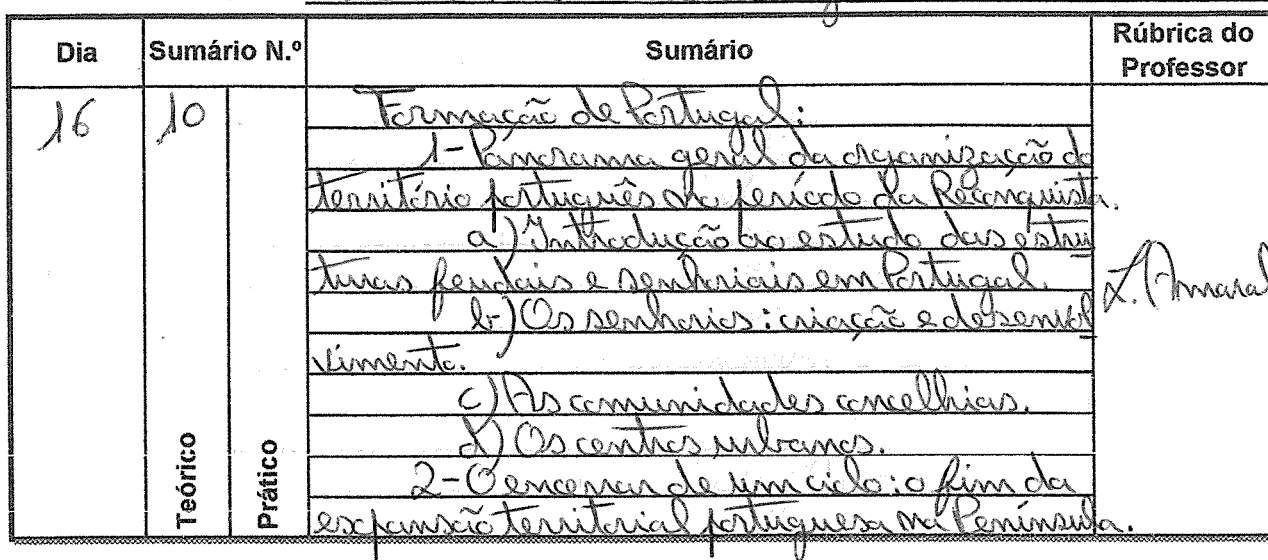 Dia
Sumário N.º
Sumário
Rúbrica do
Professor
16
10
Formação de Portugal:
1-Panorama geral da organização do
território português no período da Reconquista.
a) Introdução ao estudo das estru
turas feudais e senhoriais em Portugal.
b-) Os senhorios: criação e desenvol
vimento.
c) As comunidades concelhias.
d) Os centros urbanos.
2-O encerrar de um ciclo: o fim da
expansão territorial portuguesa na Península.
L. Amaral
Teórico
Prático